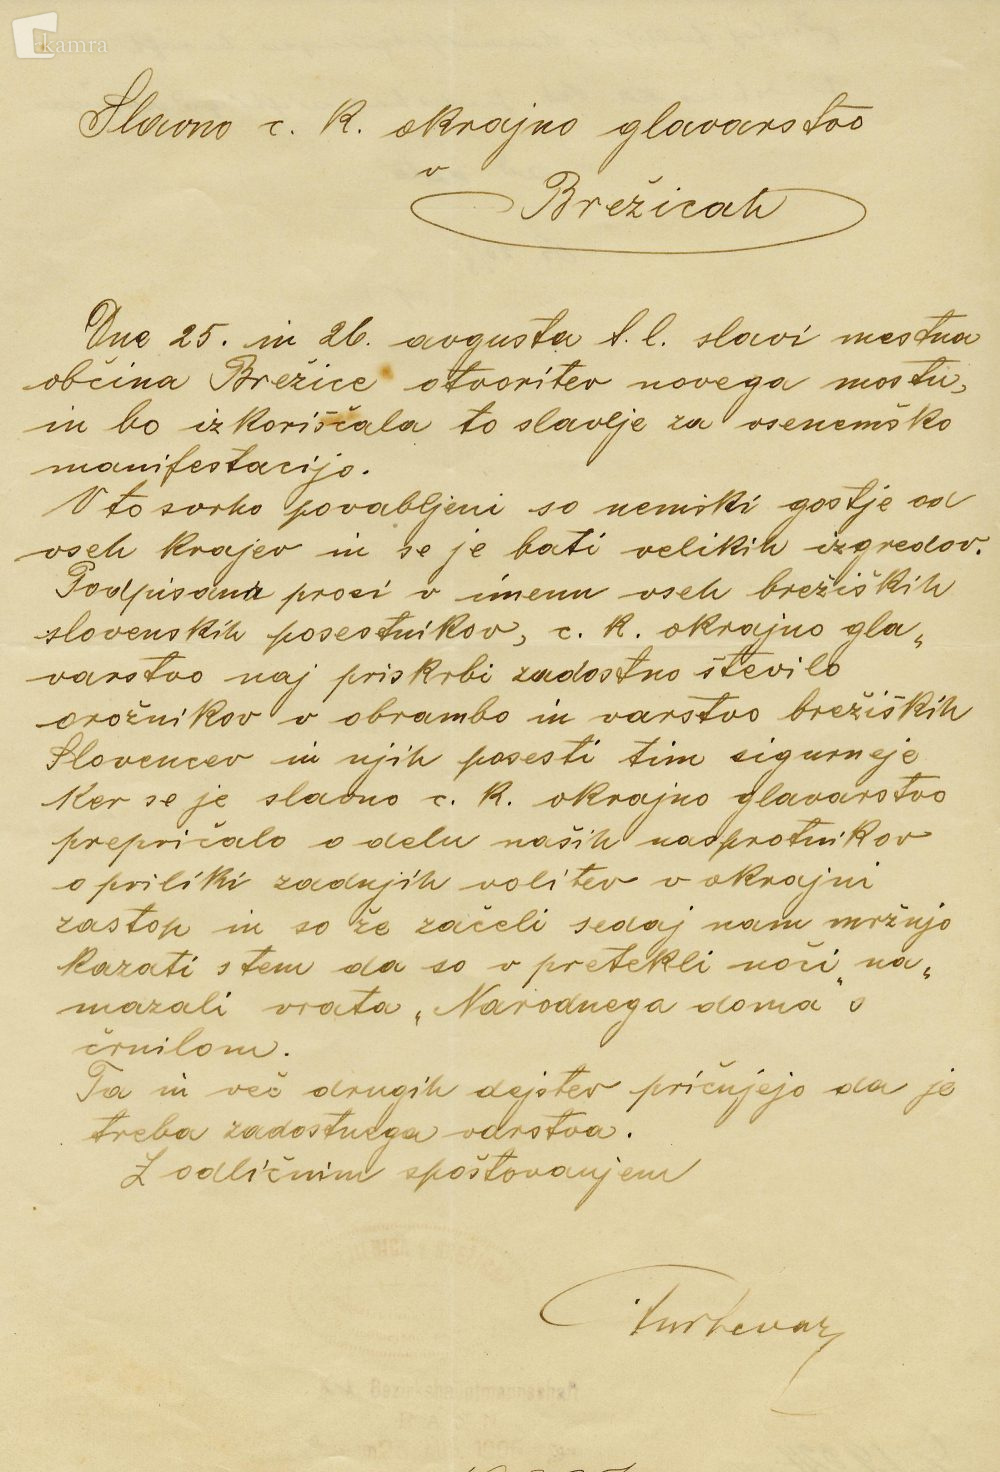 kamra
Slavno c. k. okrajno glavarstvo
v
Brežicah
Dne 25. in 26. avgusta t. l. slavi mestna
občina Brežice otvoritev novega mostu,
in bo izkoriščala to slavlje za vsenemško
manifestacijo.
V to svrho povabljeni so nemški gostje od
vseh krajev in se je bati velikih izgredov.
Podpisana prosi v imenu vseh brežiških
slovenskih posestnikov, c. k. okrajno gla„
varstvo naj priskrbi zadostno število
orožnikov v obrambo in varstvo brežiških
Slovencev in njih posesti tim sigurneje
Ker se je slavno c. k. okrajno glavarstvo
prepričalo o delu naših nasprotnikov
o priliki zadnjih volitev v okrajni
zastop in so že začeli sedaj nam mržnjo
kazati s tem da so v pretekli noči na„
mazali vrata „Narodnega doma" s
črnilom.
Ta in več drugih dejstev pričujejo da je
treba zadostnega varstva.
Z odličnim spoštovanjem
K. k. Bezirkshauptmannschaft